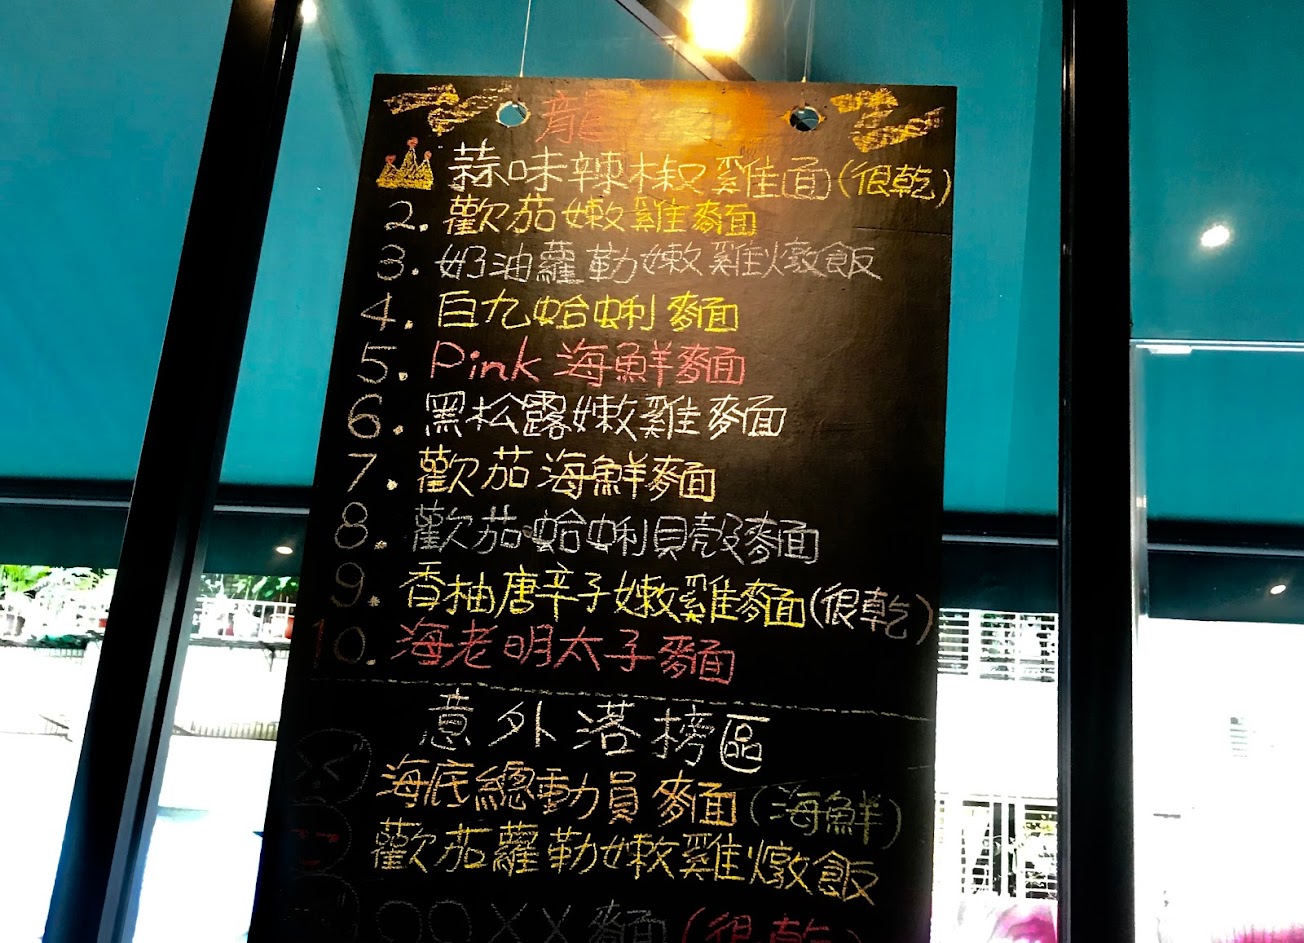 龍
蒜味辣椒雞面(很乾)
2. 歡茄嫩雞麵
3. 奶油蘿勒嫩雞燉飯
4. 白九蛤蜊麵
5. Pink 海鮮麵
6. 黑松露嫩雞麵
7. 歡茄海鮮麵
8. 歡茄蛤蜊貝殼麵
9. 香柚唐辛子嫩雞麵(很乾)
10. 海老明太子麵
意外落榜區
海底總動員麵(海鮮)
歡茄蘿勒嫩雞燉飯
OOXX麵(很乾)